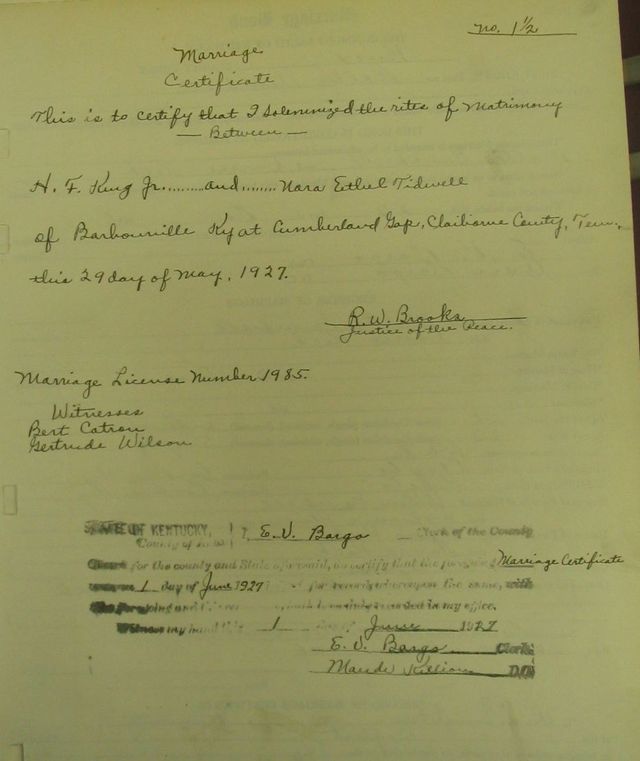 No. 1 1/2
Marriage
Certificate
This is to certify that I solemnized the rites of Matrimony
— Between —
H. F. King Jr..........and........Nara Ethel Tidwell
of Barbourville Ky at Cumberland Gap, Claiborne County, Tenn.
this 29 day of May, 1927.
R.W. Brooks
Justice of the Peace.
Marriage License Number 1985.
Witnesses
Bert Catron
Gertrude Wilson
STATE OF KENTUCKY, I, E. V. Bargo Clerk of the County
County of
for the county and State aforesaid, do certify that the foregoing Marriage Certificate
was on 1 day of June 1927 for record whereupon the same, with
the foregoing and recorded in my office.
Witness my hand this 1 day of June 1927
E. V. Bargo Clerk
Maude Killion D.C.